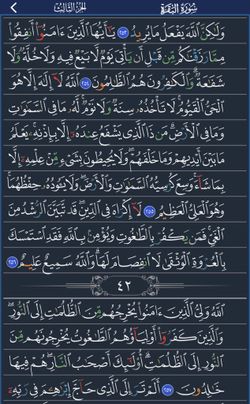 سُورَةُ البَقَرَةِ الجُزءُ الثَّالِثُ
وَلَٰكِنَّ ٱللَّهَ يَفْعَلُ مَا يُرِيدُ ٢٥٣ يَٰٓأَيُّهَا ٱلَّذِينَ ءَامَنُوٓا۟ أَنفِقُوا۟
مِمَّا رَزَقْنَٰكُم مِّن قَبْلِ أَن يَأْتِىَ يَوْمٌ لَّا بَيْعٌ فِيهِ وَلَا خُلَّةٌ وَلَا
شَفَٰعَةٌ وَٱلْكَٰفِرُونَ هُمُ ٱلظَّٰلِمُونَ ٢٥٤ ٱللَّهُ لَآ إِلَٰهَ إِلَّا هُوَ
ٱلْحَىُّ ٱلْقَيُّومُ لَا تَأْخُذُهُۥ سِنَةٌ وَلَا نَوْمٌ لَّهُۥ مَا فِى ٱلسَّمَٰوَٰتِ
وَمَا فِى ٱلْأَرْضِ مَن ذَا ٱلَّذِى يَشْفَعُ عِندَهُۥٓ إِلَّا بِإِذْنِهِۦ يَعْلَمُ
مَا بَيْنَ أَيْدِيهِمْ وَمَا خَلْفَهُمْ وَلَا يُحِيطُونَ بِشَىْءٍ مِّنْ عِلْمِهِۦٓ إِلَّا
بِمَا شَآءَ وَسِعَ كُرْسِيُّهُ ٱلسَّمَٰوَٰتِ وَٱلْأَرْضَ وَلَا يَـُٔودُهُۥ حِفْظُهُمَا
وَهُوَ ٱلْعَلِىُّ ٱلْعَظِيمُ ٢٥٥ لَآ إِكْرَاهَ فِى ٱلدِّينِ قَد تَّبَيَّنَ ٱلرُّشْدُ مِنَ
ٱلْغَىِّ فَمَن يَكْفُرْ بِٱلطَّٰغُوتِ وَيُؤْمِنۢ بِٱللَّهِ فَقَدِ ٱسْتَمْسَكَ
بِٱلْعُرْوَةِ ٱلْوُثْقَىٰ لَا ٱنفِصَامَ لَهَا وَٱللَّهُ سَمِيعٌ عَلِيمٌ ٢٥٦
٤٢
ٱللَّهُ وَلِىُّ ٱلَّذِينَ ءَامَنُوا۟ يُخْرِجُهُم مِّنَ ٱلظُّلُمَٰتِ إِلَى ٱلنُّورِ
وَٱلَّذِينَ كَفَرُوٓا۟ أَوْلِيَآؤُهُمُ ٱلطَّٰغُوتُ يُخْرِجُونَهُم مِّنَ
ٱلنُّورِ إِلَى ٱلظُّلُمَٰتِ أُو۟لَٰٓئِكَ أَصْحَٰبُ ٱلنَّارِ هُمْ فِيهَا
خَٰلِدُونَ ٢٥٧ أَلَمْ تَرَ إِلَى ٱلَّذِى حَآجَّ إِبْرَٰهِـۧمَ فِى رَبِّهِۦٓ